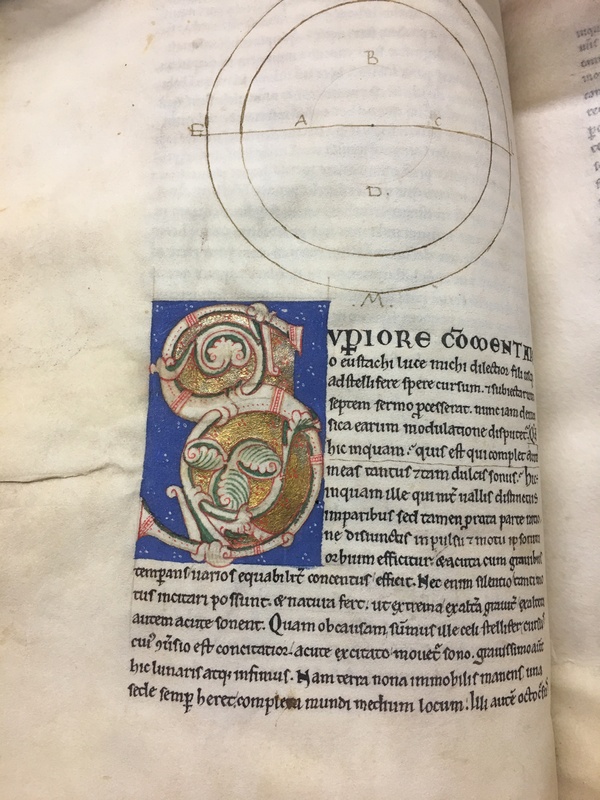 B
E A C
D.
.M.
VPIORE COMENTA
o eustachi luce michi dilectior fili usq
ad stellifere spere cursum. ⁊ subiectarum
septem sermo pcesserat. nunc iam de mu
sica earum modulatione disputet. Quis
hic inquam. quis est qui complet aures
meas tantus ⁊ tam dulcis sonus. hic
inquam ille qui int uallis distinctus
imparibus sed tamen p rata parte ratio
ne disiunctis inpulsu ⁊ motu ip sorum
orbium efficitur. & acuta cum grauibus
temperans uarios equabilit concentus efficit. Nec enim silentio tanti mo
tus incitari possunt. & natura fert. ut extrema ex alta grauit ex altera
autem acute sonent. Quam ob causam sumus ille celi stellifer cursus
cui uersio est concitatior acute excitato mouet sono. grauissimo aut
hic lunaris atq infimus. Nam terra nona immobilis manens una
sede semp heret complexa mundi medium locum. Illi aute octo